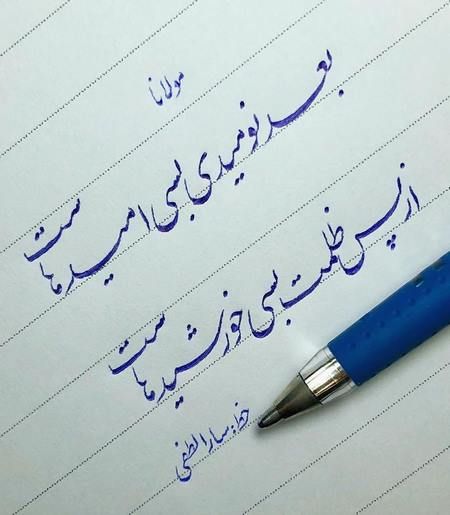 مولانا
بعد نومیدی بسی امیدهاست
از پس ظلمت بسی خورشیدهاست
خط: سارا لطفی